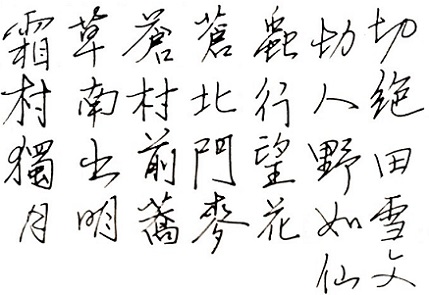 霜草蒼蒼蟲切切
村南村北行人絕
獨出前門望野田
月明蕎麥花如雪
仙文